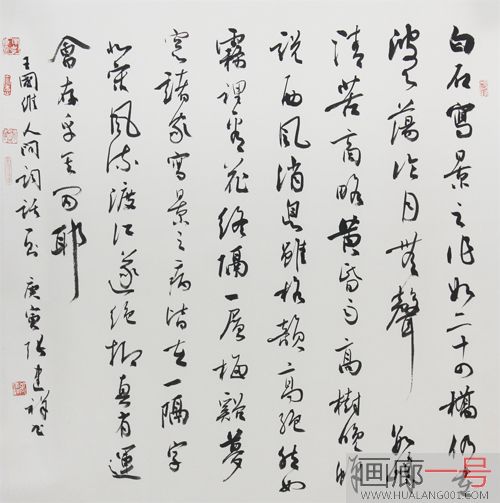 白石寫景之作如二十四橋仍在
波心蕩冷月無聲數峰
清苦商略黄昏雨高樹晚蟬
說西風消息雖格韻高絕然如
霧裡看花終隔一層梅谿夢
窗諸家寫景之病皆在一隔字
北宋風流渡江遂絕抑真有運
會存乎其間耶
王國維人间詞話 庚寅張建祥書
画廊一号
WWW.HUALANG001.COM